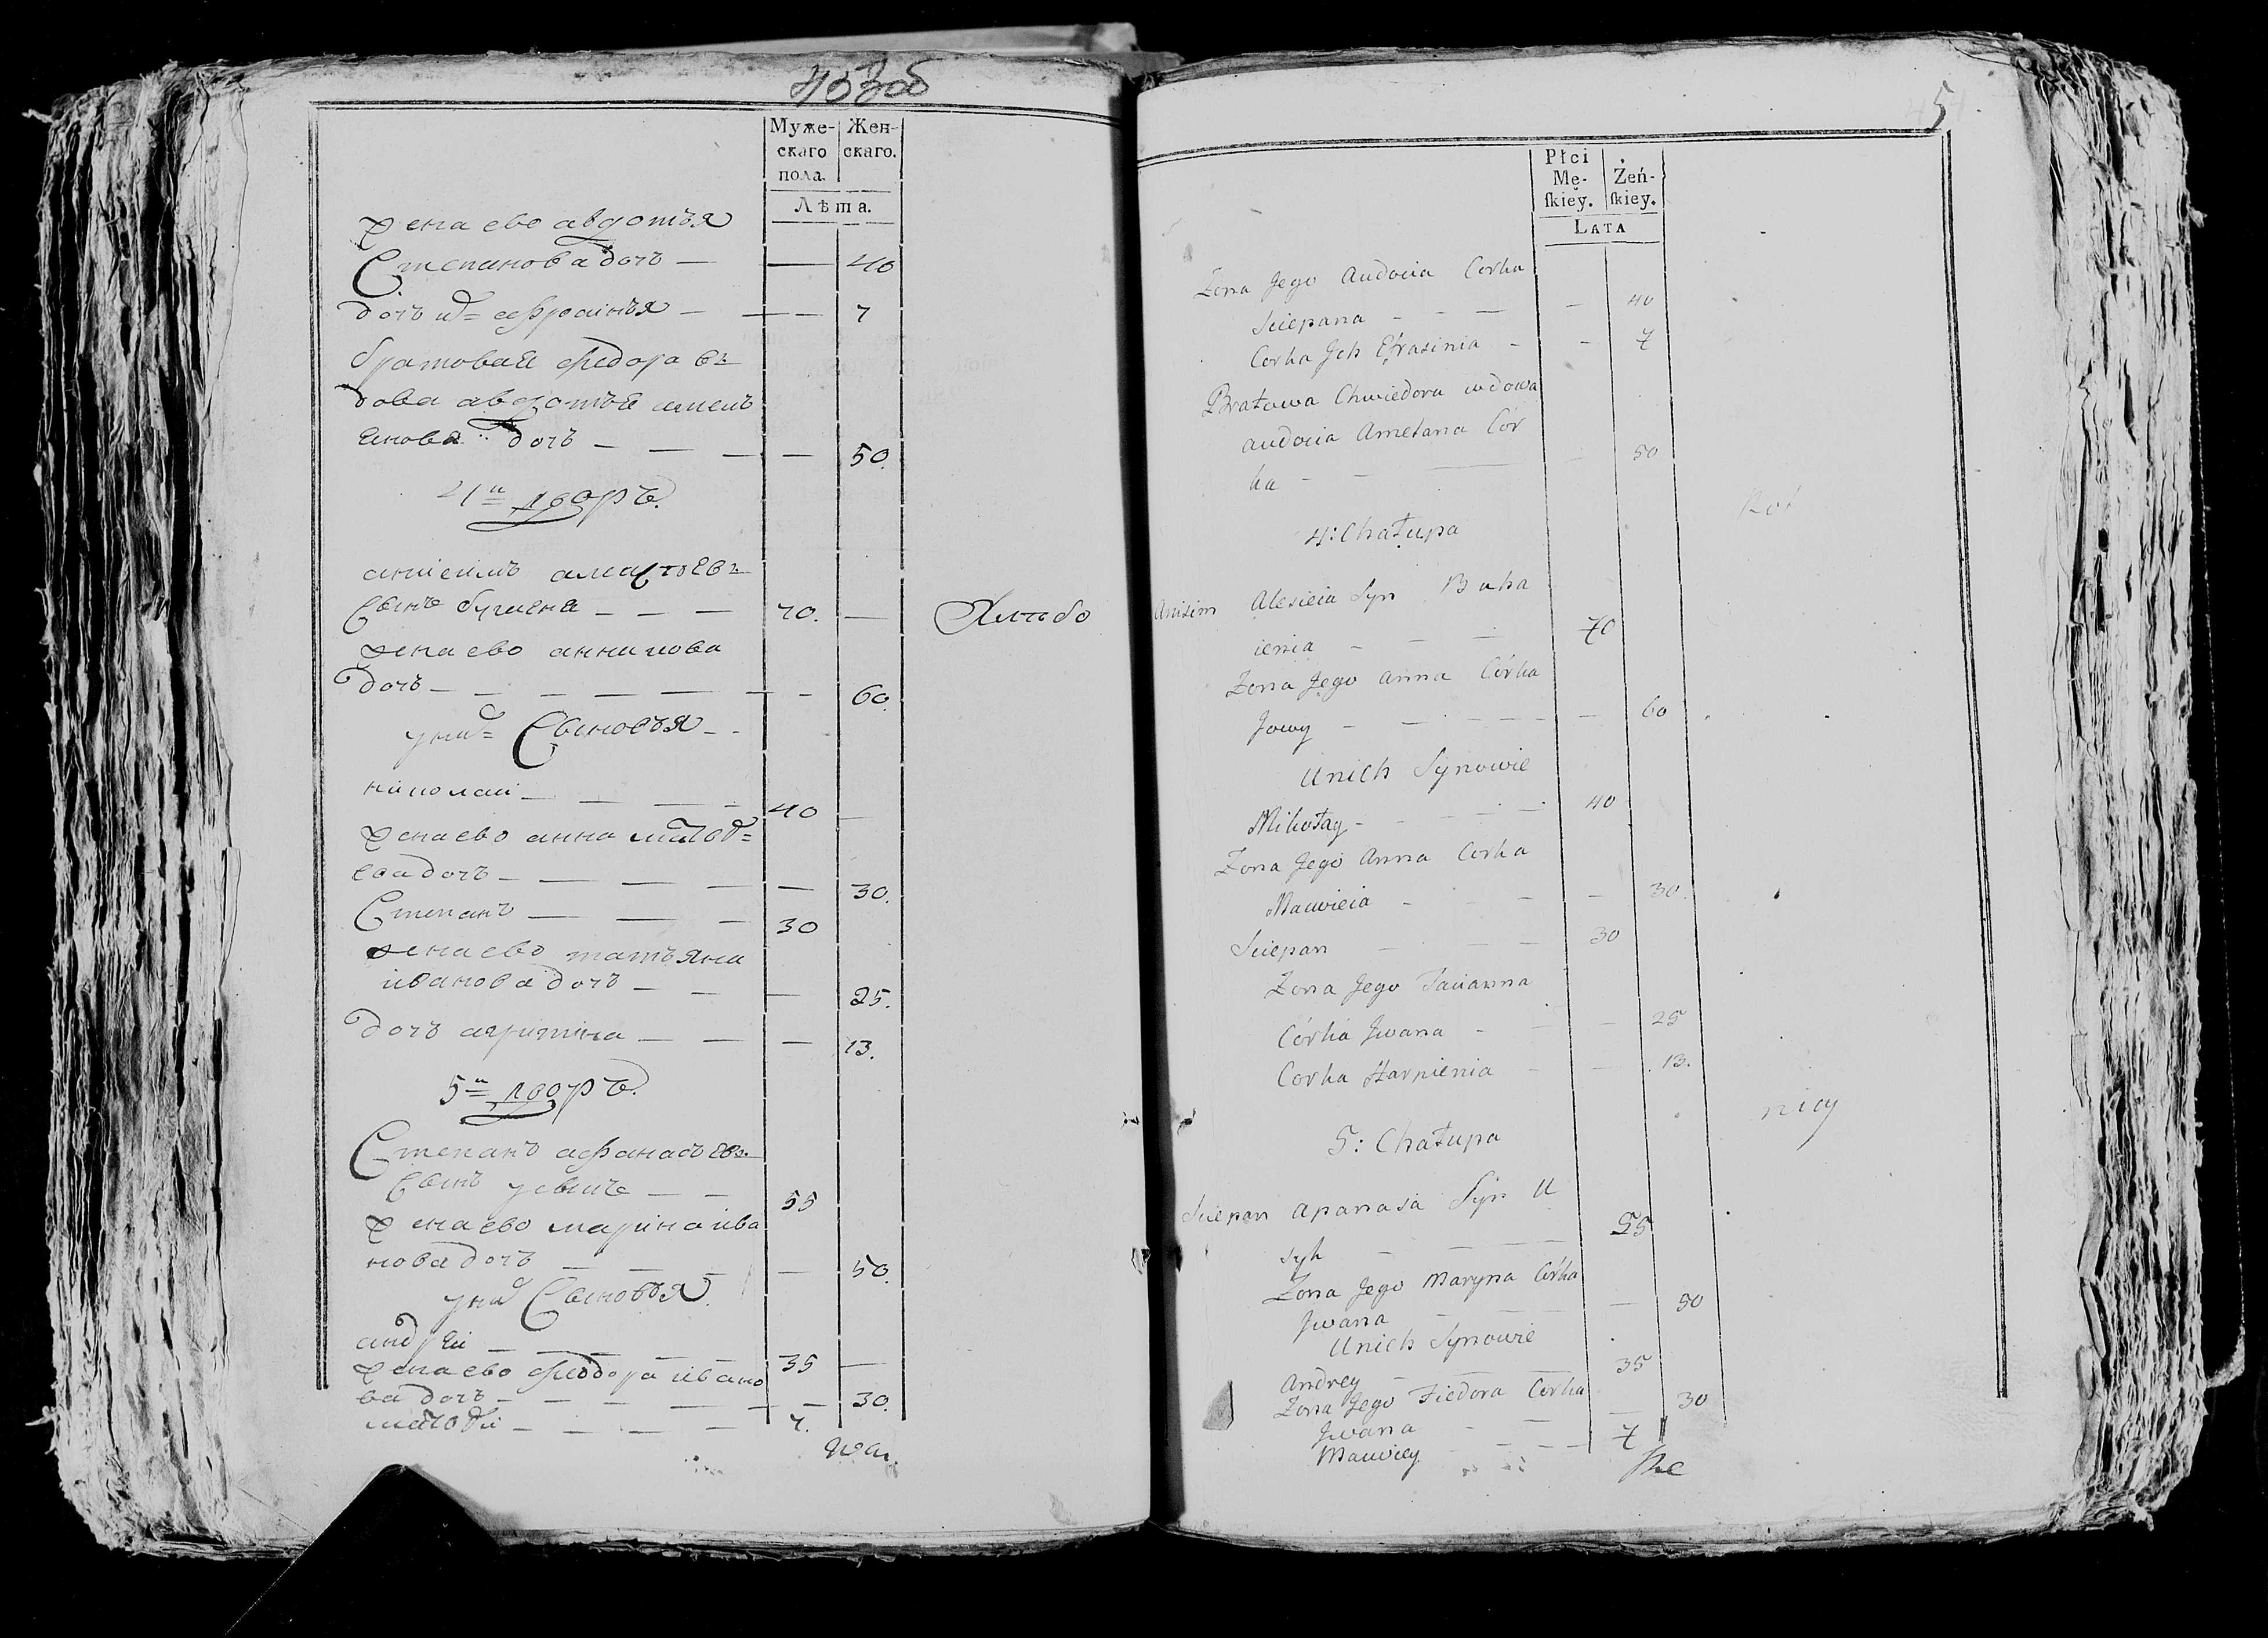 403об
Муже-
скаго
пола.
Жен-
скаго.
Лѣта.
жена ево авдотья
Степанова дочь — — 40
дочь их ефросинья — — — 7
братовая федора в-
дова авдотья амель
янова дочь — — — — 50.
4и дворъ
анисимъ алексеевъ
сынъ бугаеня — — — 70. —
жена ево анна иова
дочь — — — — — — 60.
у них Сыновья
николай — — — — 40 —
жена ево анна матве-
ева дочь — — — — — 30.
Степанъ — — — 30
жена ево татьяна
иванова дочь — — — 25.
дочь агрипина — — — 13.
5и дворъ
Степанъ афанасьевъ
сынъ усыкъ — — 55
жена ево марина ива
нова дочь — — — — 50.
у них Сыновья
андрей — — — — — 35 —
жена ево федора ивано
ва дочь — — — — — — 30.
матвей — — — — 7.
Хлѣбо
5
Płci
Mę-
ſkiey.
Żeń-
ſkiey.
LATA
Zona Jego Audocia Corka
Sciepana - - — — 40
Corka Jch Efrasinia - - 7
Bratowa Chwiedora wdowa
audocia Amelana Cór
ka - - — 50
4: Chałupa
Anisim Alexieia Syn Buha
ienia - - — 70
Zona Jego anna Córka
Jowy - — - — — — 60
Unich Synowie
Mikołay - - - - — 40
Zona Jego Anna Corka
Mawieia - - - — 30.
Sciepan - - - — 30
Zona Jego Tacianna
Córka Jwana - — — 25
Corka Harpienia - — 13.
5: Chałupa
Sciepan Apanasa Syn U
syk — — — 55
Zona Jego Maryna Córka
Jwana - — — 50
Unich Synowie
Andrey - — — 35
Zona Jego Fiedora Corka
Jwana - — — 30
Mawiey - - - — 7